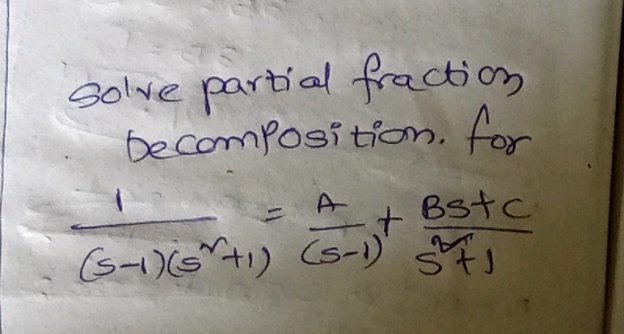 solve partial fraction
Decomposition. for
1/((s-1)(s²+1)) = A/(s-1) + (Bs+C)/(s²+1)